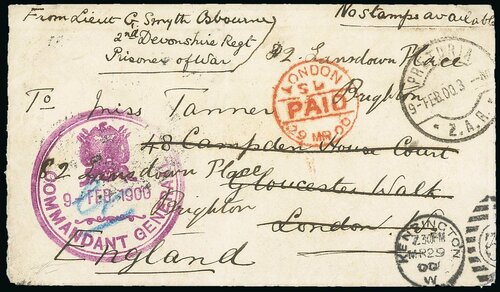 From Lieut G. Smyth Osbourne
2nd Devonshire Regt
Prisoner of War
No stamps available
82 Lansdown Place
Brighton
To Miss Tanner
48 Campden House Court
82 Lansdown Place
Gloucester Walk
Brighton
London W
England
LONDON
PAID
29 MR 00
PRETORIA
9 FEB.00
Z.A.R.
COMMANDANT GENERAAL
9 FEB 1900
KENSINGTON
7.30PM
MR 29
00
W